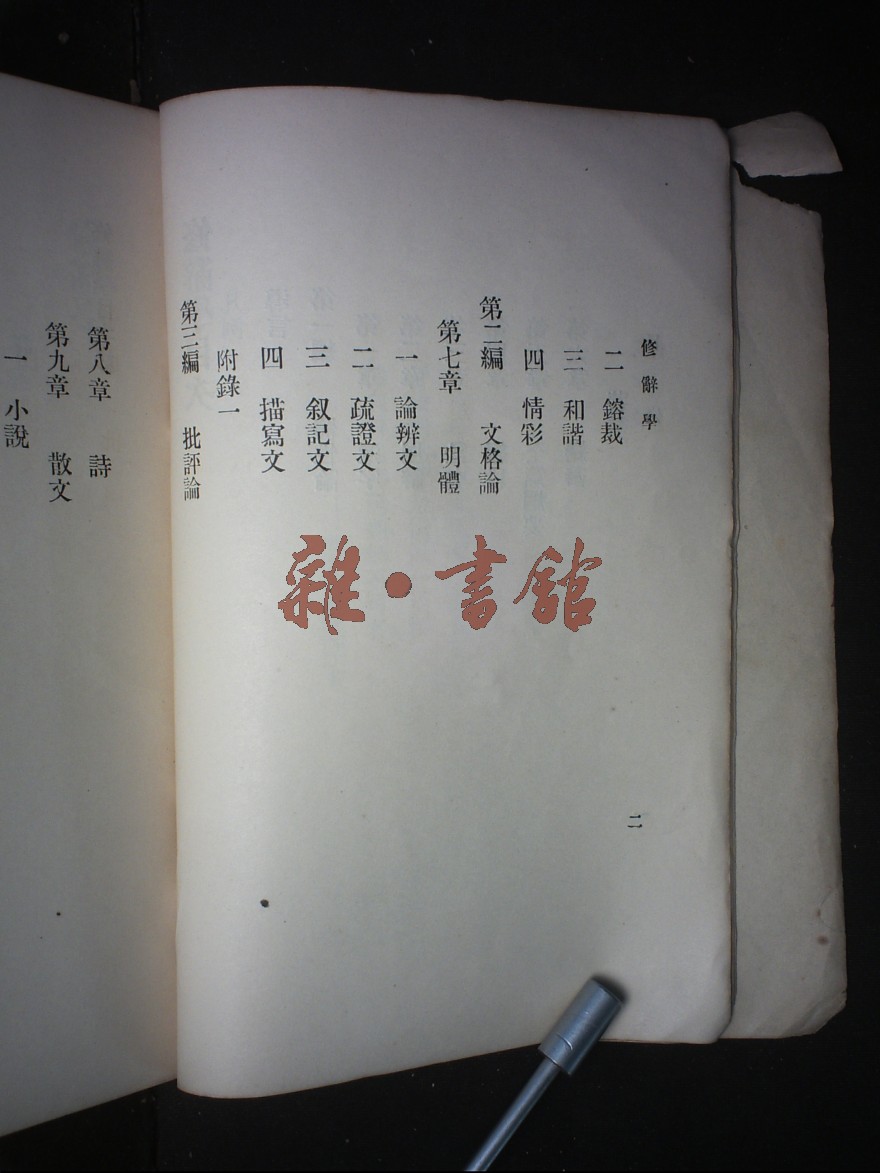 修辭學
二 鎔裁
三 和諧
四 情彩
第二編 文格論
第七章 明體
一 論辨文
二 疏證文
三 叙記文
四 描寫文
附錄一
第三編 批評論
二
第八章 詩
第九章 散文
一 小說
雜·書館